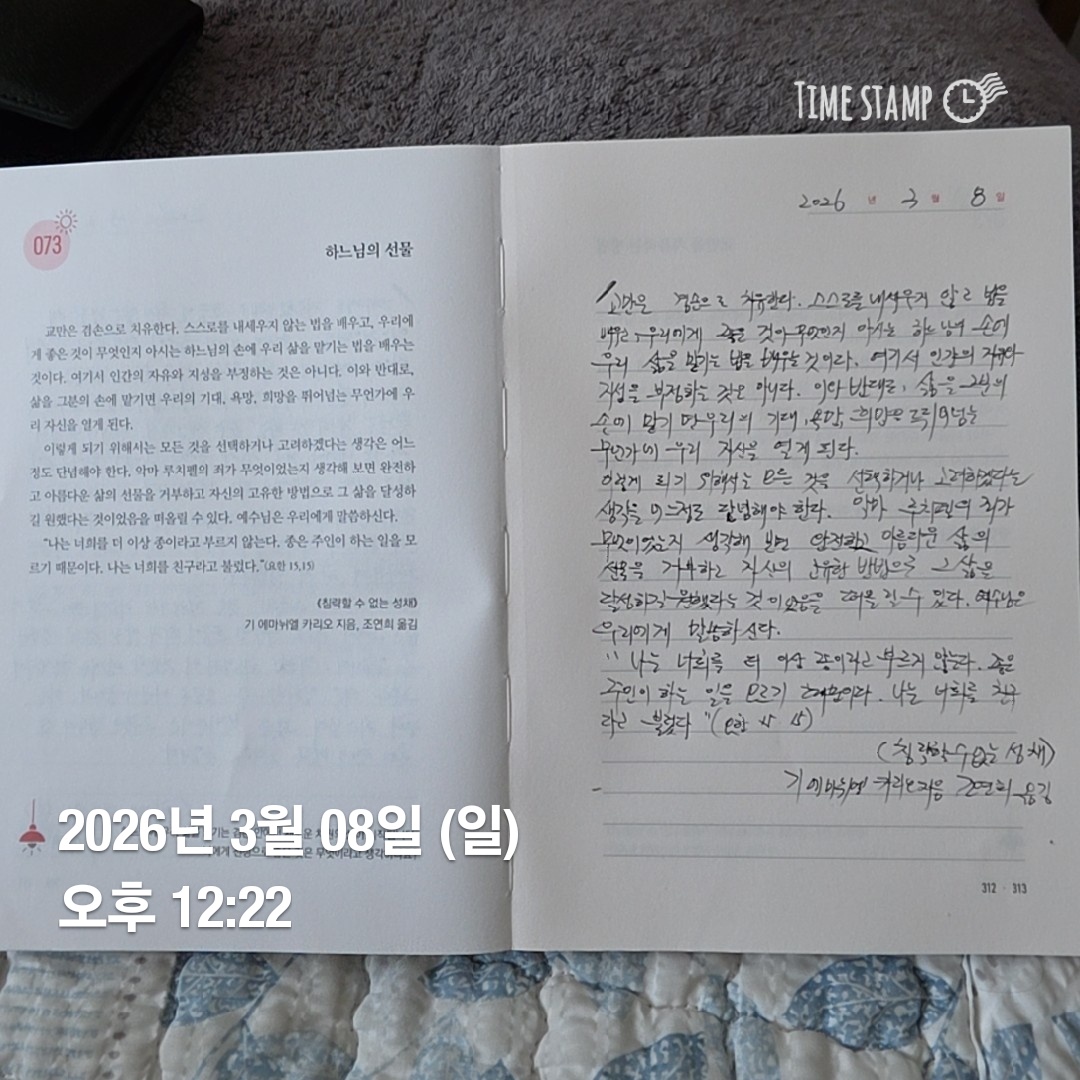 TIME STAMP
073
하느님의 선물
교만은 겸손으로 치유한다. 스스로를 내세우지 않는 법을 배우고, 우리에
게 좋은 것이 무엇인지 아시는 하느님의 손에 우리 삶을 맡기는 법을 배우는
것이다. 여기서 인간의 자유와 지성을 부정하는 것은 아니다. 이와 반대로,
삶을 그분의 손에 맡기면 우리의 기대, 욕망, 희망을 뛰어넘는 무언가에 우
리 자신을 열게 된다.
이렇게 되기 위해서는 모든 것을 선택하거나 고려하겠다는 생각은 어느
정도 단념해야 한다. 아마 루치펠의 죄가 무엇이었는지 생각해 보면 완전하
고 아름다운 삶의 선물을 거부하고 자신의 고유한 방법으로 그 삶을 달성하
길 원했다는 것이었음을 떠올릴 수 있다. 예수님은 우리에게 말씀하신다.
“나는 너희를 더 이상 종이라고 부르지 않는다. 종은 주인이 하는 일을 모
르기 때문이다. 나는 너희를 친구라고 불렀다.”(요한 15,15)
《침략할 수 없는 성채》
기 에마뉘엘 카리오 지음, 조연희 옮김
2026 년 3 월 8 일
교만은 겸손으로 치유한다. 스스로를 내세우지 않고 법을
배우고, 우리에게 좋은 것이 무엇인지 아시는 하느님의 손에
우리 삶을 맡기는 법을 배우는 것이다. 여기서 인간의 자유와
지성을 부정하는 것은 아니다. 이와 반대로, 삶을 그분의
손에 맡기 우리의 기대, 욕망, 희망
무언가에 우리 자신을 열게 된다.
이렇게 되기 위해서는 모든 것을 선택하거나 고려하겠다는
생각을 어느정도 단념해야 한다. 아마 루치펠의 죄가
무엇이었는지 생각해 보면 완전하고 아름다운 삶의
선물을 거부하고 자신의 고유한 방법으로 그 삶을
달성하길 원했다는 것이었음을 떠올릴 수 있다. 예수님은
우리에게 말씀하신다.
"나는 너희를 더 이상 종이라고 부르지 않는다. 종은
주인이 하는 일을 모르기 때문이다. 나는 너희를 친구
라고 불렀다" (요한 15 15)
(침략할 수 없는 성채)
기 에마뉘엘 카리오 지음 조연희 옮김
312 · 313
2026년 3월 08일 (일)
오후 12:22